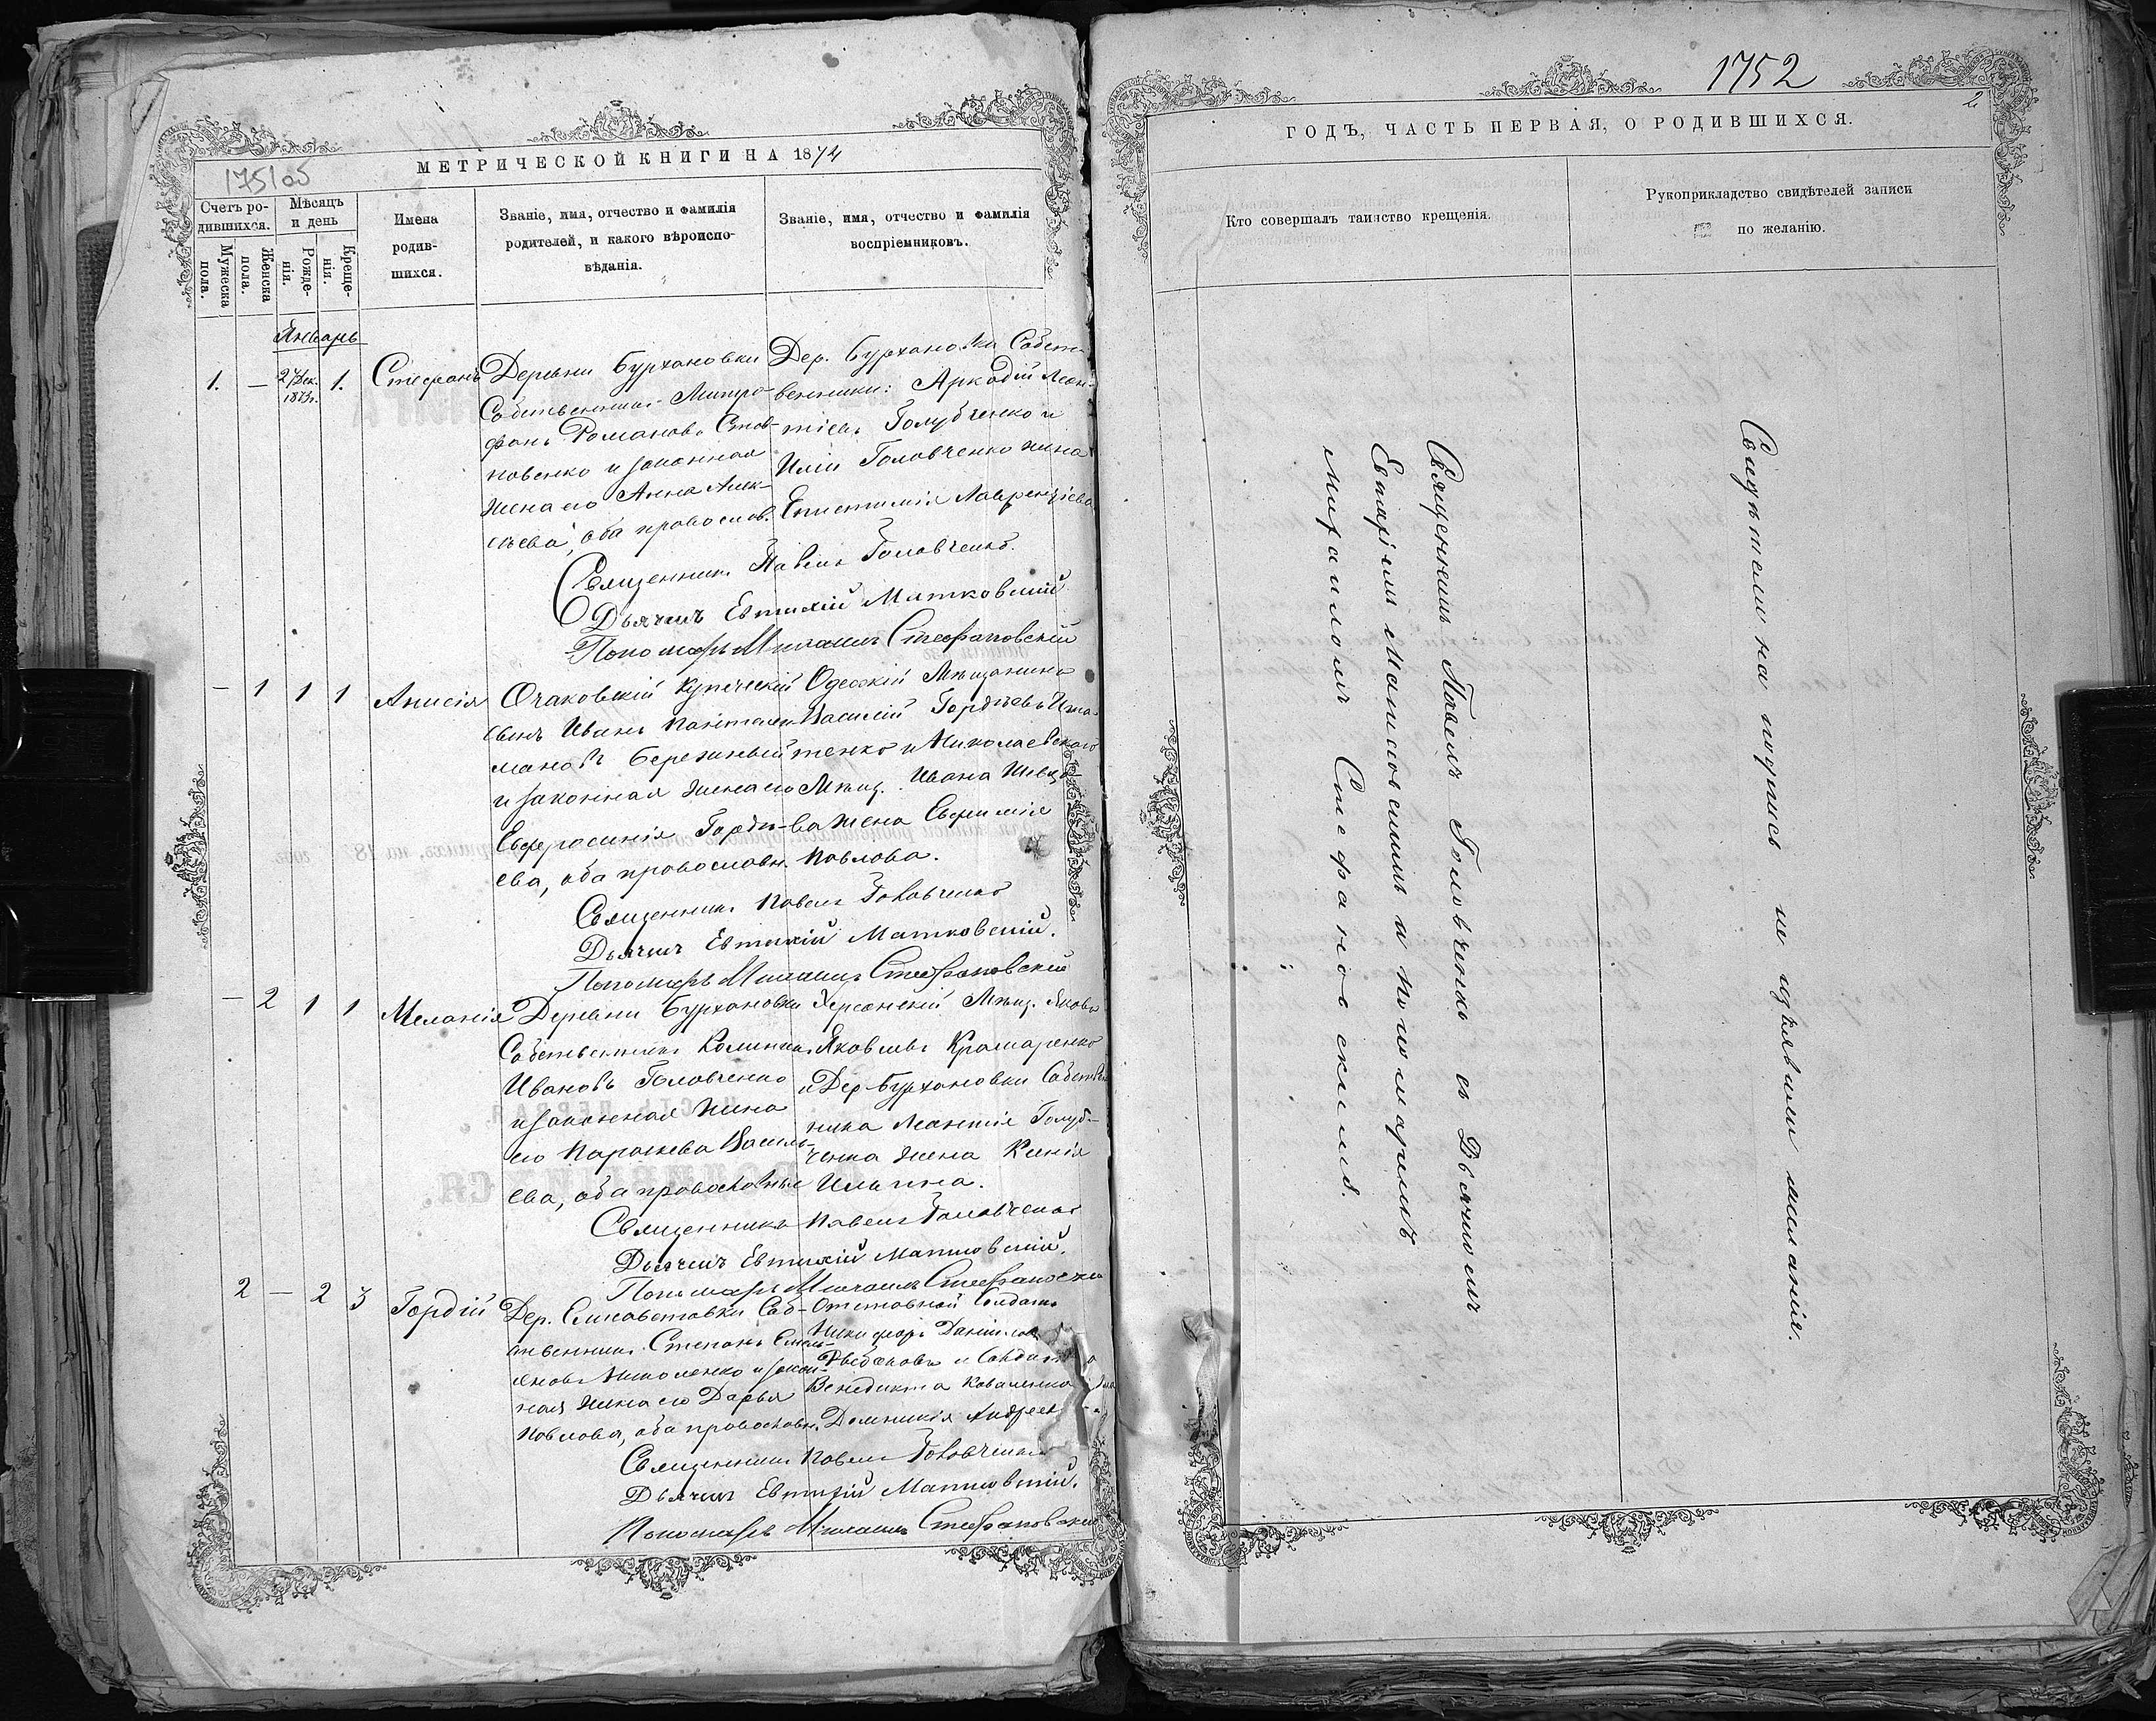 МЕТРИЧЕСКОЙ КНИГИ НА 1874
175105
Счетъ ро-
дившихся.
Мужеска
пола.
Женска
пола.
Мѣсяцъ
и день
Рожде-
нія.
Креще-
нія.
Имена
родив-
шихся.
Званіе, имя, отчество и фамилія
родителей, и какого вѣроиспо-
вѣданія.
Званіе, имя, отчество и фамилія
воспріемниковъ.
Январь
1. — 27 Дек. 1873 г. 1. Стефанъ
Деревни Бурхановки
Собственникъ Митро-
фанъ Романовъ
и законная
жена его Анна Алек-
сѣева, оба православ.
Дер. Бурхановки Собст-
венники: Аркадій Леон-
тіевъ Голубченко и
Иліи Головченко жена
Епистимія Лаврентіева
Священникъ Павелъ Головченко.
Дьячекъ Евтихій Матковскій
Пономарь Михаилъ Стефановскій
— 1 1 1 Анисія
Очаковскій Купеческій
сынъ Иванъ Пантелей-
мановъ Бережный
и законная жена его
Евфросинія Горді-
ева, оба православн.
Одесскій Мѣщанинъ
Василій Гордѣевъ Игна-
тенко и Николаевскаго
Мѣщ. Ивана Шевцо-
ва жена Евфимія
Павлова.
Священникъ Павелъ Головченко
Дьячекъ Евтихій Матковскій.
Пономарь Михаилъ Стефановскій
— 2 1 1 Меланія
Деревни Бурхановки
Собственникъ
Ивановъ Головченко
и законная жена
его Параскева Василь-
ева, оба православные
Херсонскій Мѣщ. Яковъ
Яковлевъ Крамаренко
и Дер. Бурхановки Собствен
ника Леонтія Голуб-
ченка жена Ксенія
Ильина.
Священникъ Павелъ Головченко
Дьячекъ Евтихій Матковскій.
Пономарь Михаилъ Стефановскій
2 — 2 3 Гордій
Дер. Елисаветовки Соб-
ственникъ Степанъ Емель-
яновъ Николенко и закон-
ная жена его Дарья
Павлова, оба православн.
Отставной Солдатъ
Никифоръ
и Солдата
Венедикта Коваленка
Домникія Андреев
Священникъ Павелъ Головченко
Дьячекъ Евтихій Матковскій.
Пономарь Михаилъ Стефановскій
1752
2
ГОДЪ, ЧАСТЬ ПЕРВАЯ, О РОДИВШИХСЯ.
Кто совершалъ таинство крещенія.
Рукоприкладство свидѣтелей записи
по желанію.
Священникъ Павелъ Головченко съ Дьячкомъ
Евтихіемъ Матковскимъ и Пономаремъ
Михаиломъ Стефановскимъ.
Свидѣтели на подпись не изъявили желанія.